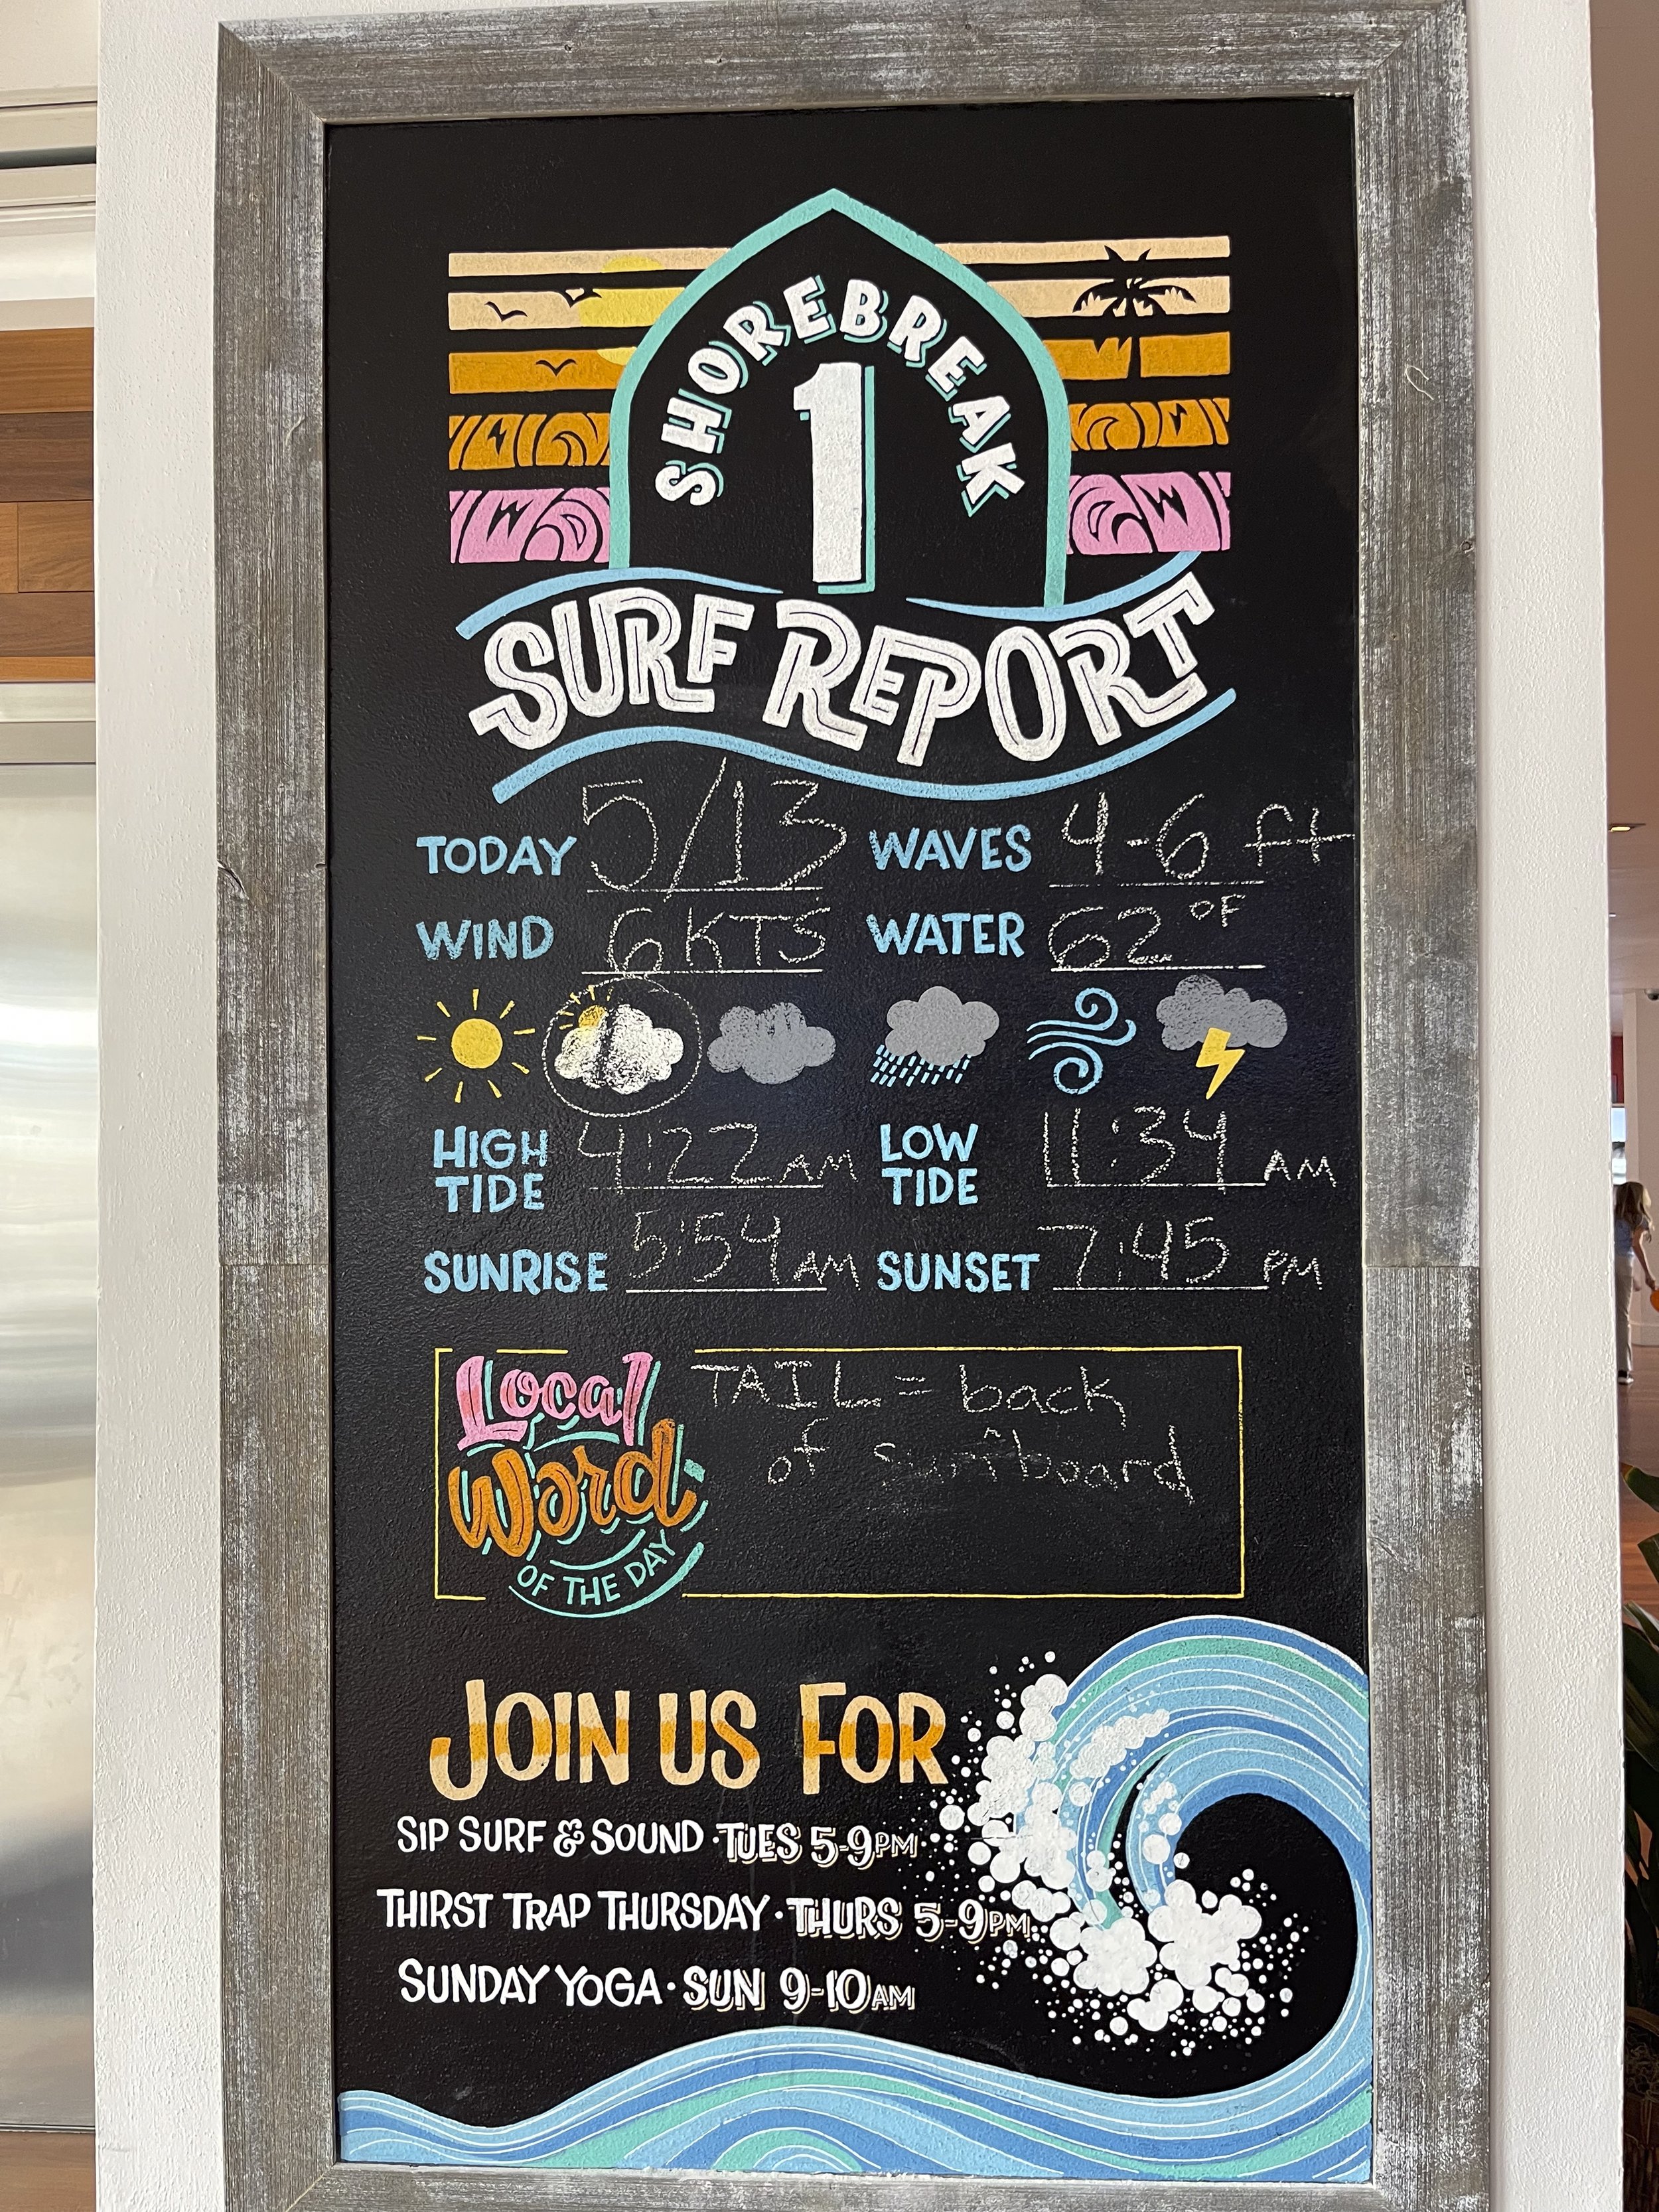 SHOREBREAK
1
SURF REPORT
TODAY 5/13 WAVES 4-6 ft
WIND 6 KTS WATER 62°F
HIGH TIDE 4:22 AM LOW TIDE 11:34 AM
SUNRISE 5:54 AM SUNSET 7:45 PM
Local Word OF THE DAY
TAIL = back
of surfboard
JOIN US FOR
SIP SURF & SOUND · TUES 5-9PM
THIRST TRAP THURSDAY · THURS 5-9PM
SUNDAY YOGA · SUN 9-10AM